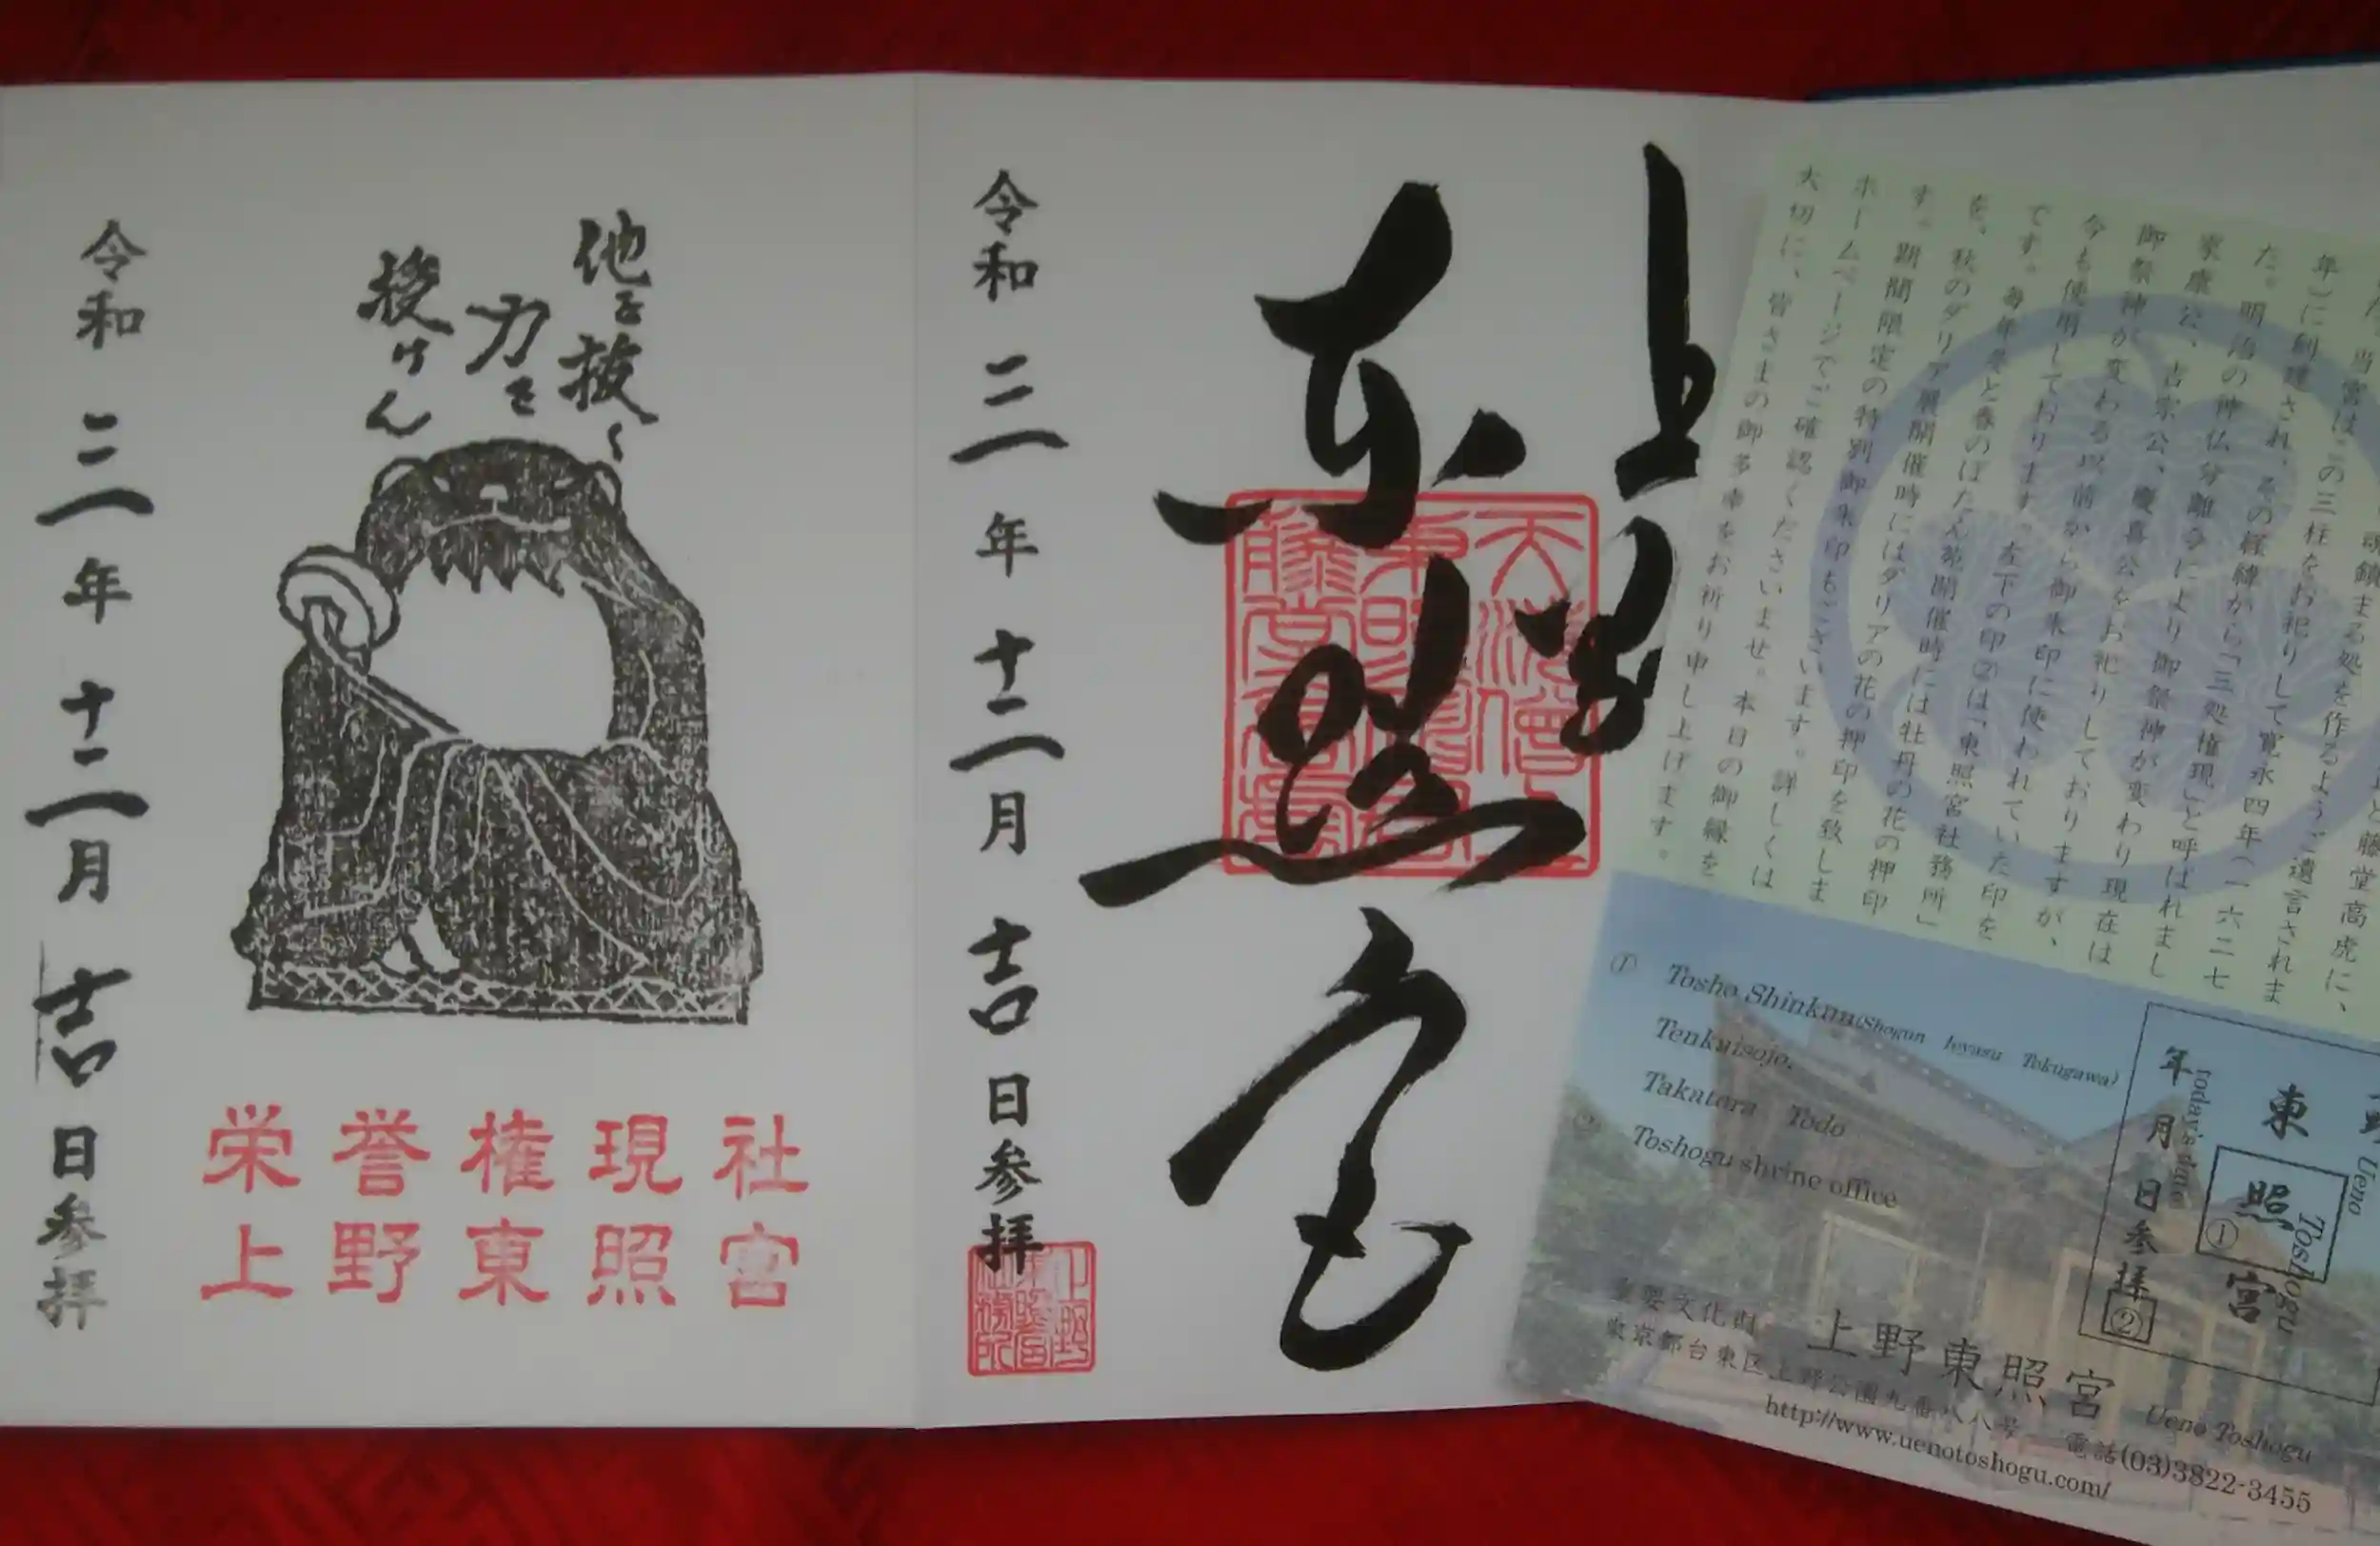 他を抜く
力を
授けん
令和三年十二月吉日参拝
栄誉権現社
上野東照宮
上野
東照宮
天海僧正
東照神君
藤堂高虎
令和三年十二月吉日参拝
上野
東照宮
社務所
魂鎮まる処を作るようご遺言されま
当宮はこの三柱をお祀りして寛永四年(一六二七
年)に創建され、その経緯から「三処権現」と呼ばれまし
た。明治の神仏分離令により御祭神が変わり現在は
家康公、吉宗公、慶喜公をお祀りしておりますが、
御祭神が変わる以前から御朱印に使われていた印を
今も使用しております。左下の印②は「東照宮社務所」
です。毎年冬と春のぼたん苑開催時には牡丹の花の押印
を、秋のダリア展開催時にはダリアの花の押印を致しま
す。期間限定の特別御朱印もございます。詳しくは
ホームページでご確認くださいませ。本日の御縁を
大切に、皆さまの御多幸をお祈り申し上げます。
① Tosho Shinkun(Shogun Ieyasu Tokugawa)
Tenkaisojo.
Takatora Todo
② Toshogu shrine office
野
Ueno Toshogu
東照宮
①
today's date
年月日参拝
②
重要文化財 上野東照宮 Ueno Toshogu
東京都台東区上野公園九番八八号 電話(03)3822-3455
http://www.uenotoshogu.com/